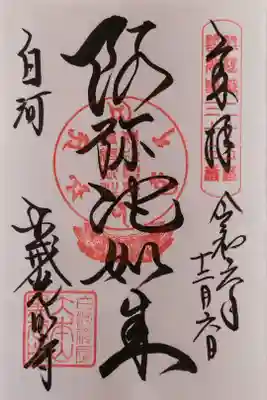 奉拝
令和六年
十二月六日
阿弥陀如来
白河
金戒光明寺